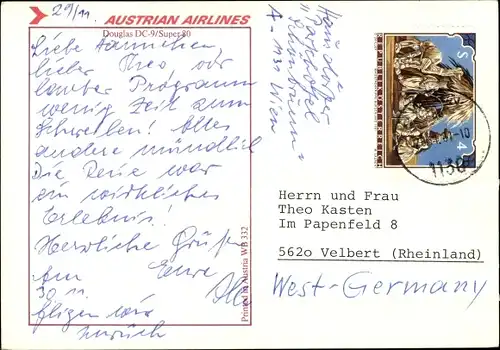 29/11.
AUSTRIAN AIRLINES
Douglas DC-9/Super 80
Liebe Hannchen,
lieber Theo vor
lauter Programm
wenig Zeit zum
Schreiben! Alles
andere mündlich
Die Reise war
ein wirkliches
Erlebnis!
Herzliche Grüße
Eure
Am
30.11.
fliegen wir
zurück
Printed in Austria WB 332
"Parkhotel
Schönbrunn"
A-1130 Wien
S 4
1130
Herrn und Frau
Theo Kasten
Im Papenfeld 8
5620 Velbert (Rheinland)
West-Germany